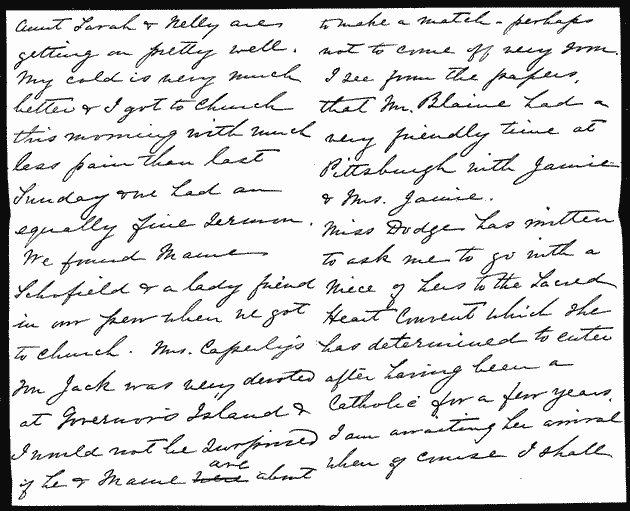 Aunt Sarah & Nelly are
getting on pretty well.
My cold is very much
better & I got to Church
this morning with much
less pain than last
Sunday & we had an
equally fine sermon.
We found Mame
Schofield & a lady friend
in our pew when we got
to church. Mrs. Caperly's
son Jack was very devoted
at Governor's Island &
I would not be surprised
if he & Mame were are about
to make a match - perhaps
not to come off very soon.
I see from the papers,
that Mr. Blaine had a
very friendly time at
Pittsburgh with Jamie
& Mrs. Jamie.
Miss Dodge has written
to ask me to go with a
Niece of hers to the Sacred
Heart Convent which she
has determined to enter
after having been a
Catholic for a few years.
I am awaiting her arrival
when of course I shall